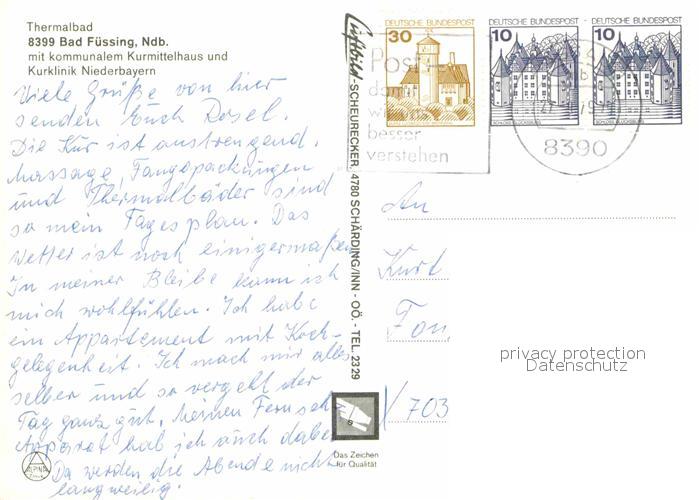 Thermalbad
8399 Bad Füssing, Ndb.
mit kommunalem Kurmittelhaus und
Kurklinik Niederbayern
Viele Grüße von hier
senden Euch Rosel.
Die Kur ist anstrengend.
Massage, Fangopackungen
und Thermalbäder sind
so mein Tagesplan. Das
Wetter ist noch einigermaßen
In meiner Bleibe kann ich
mich wohlfühlen. Ich habe
ein Appartement mit Koch-
gelegenheit. Ich mach mir alles
selber und so vergeht der
Tag ganz gut, meinen Fernseh-
Apparat hab ich auch dabei
Da werden die Abende nicht
langweilig.
ALPINA
Luftbild-SCHEURECKER, 4780 SCHÄRDING/INN - OÖ. - TEL. 2329
Das Zeichen
für Qualität
DEUTSCHE BUNDESPOST
30
DEUTSCHE BUNDESPOST
10
SCHLOSS GLÜCKSBURG
DEUTSCHE BUNDESPOST
10
SCHLOSS GLÜCKSBURG
Post
besser
verstehen
8390
An
Kurt
Fon
703
privacy protection
Datenschutz